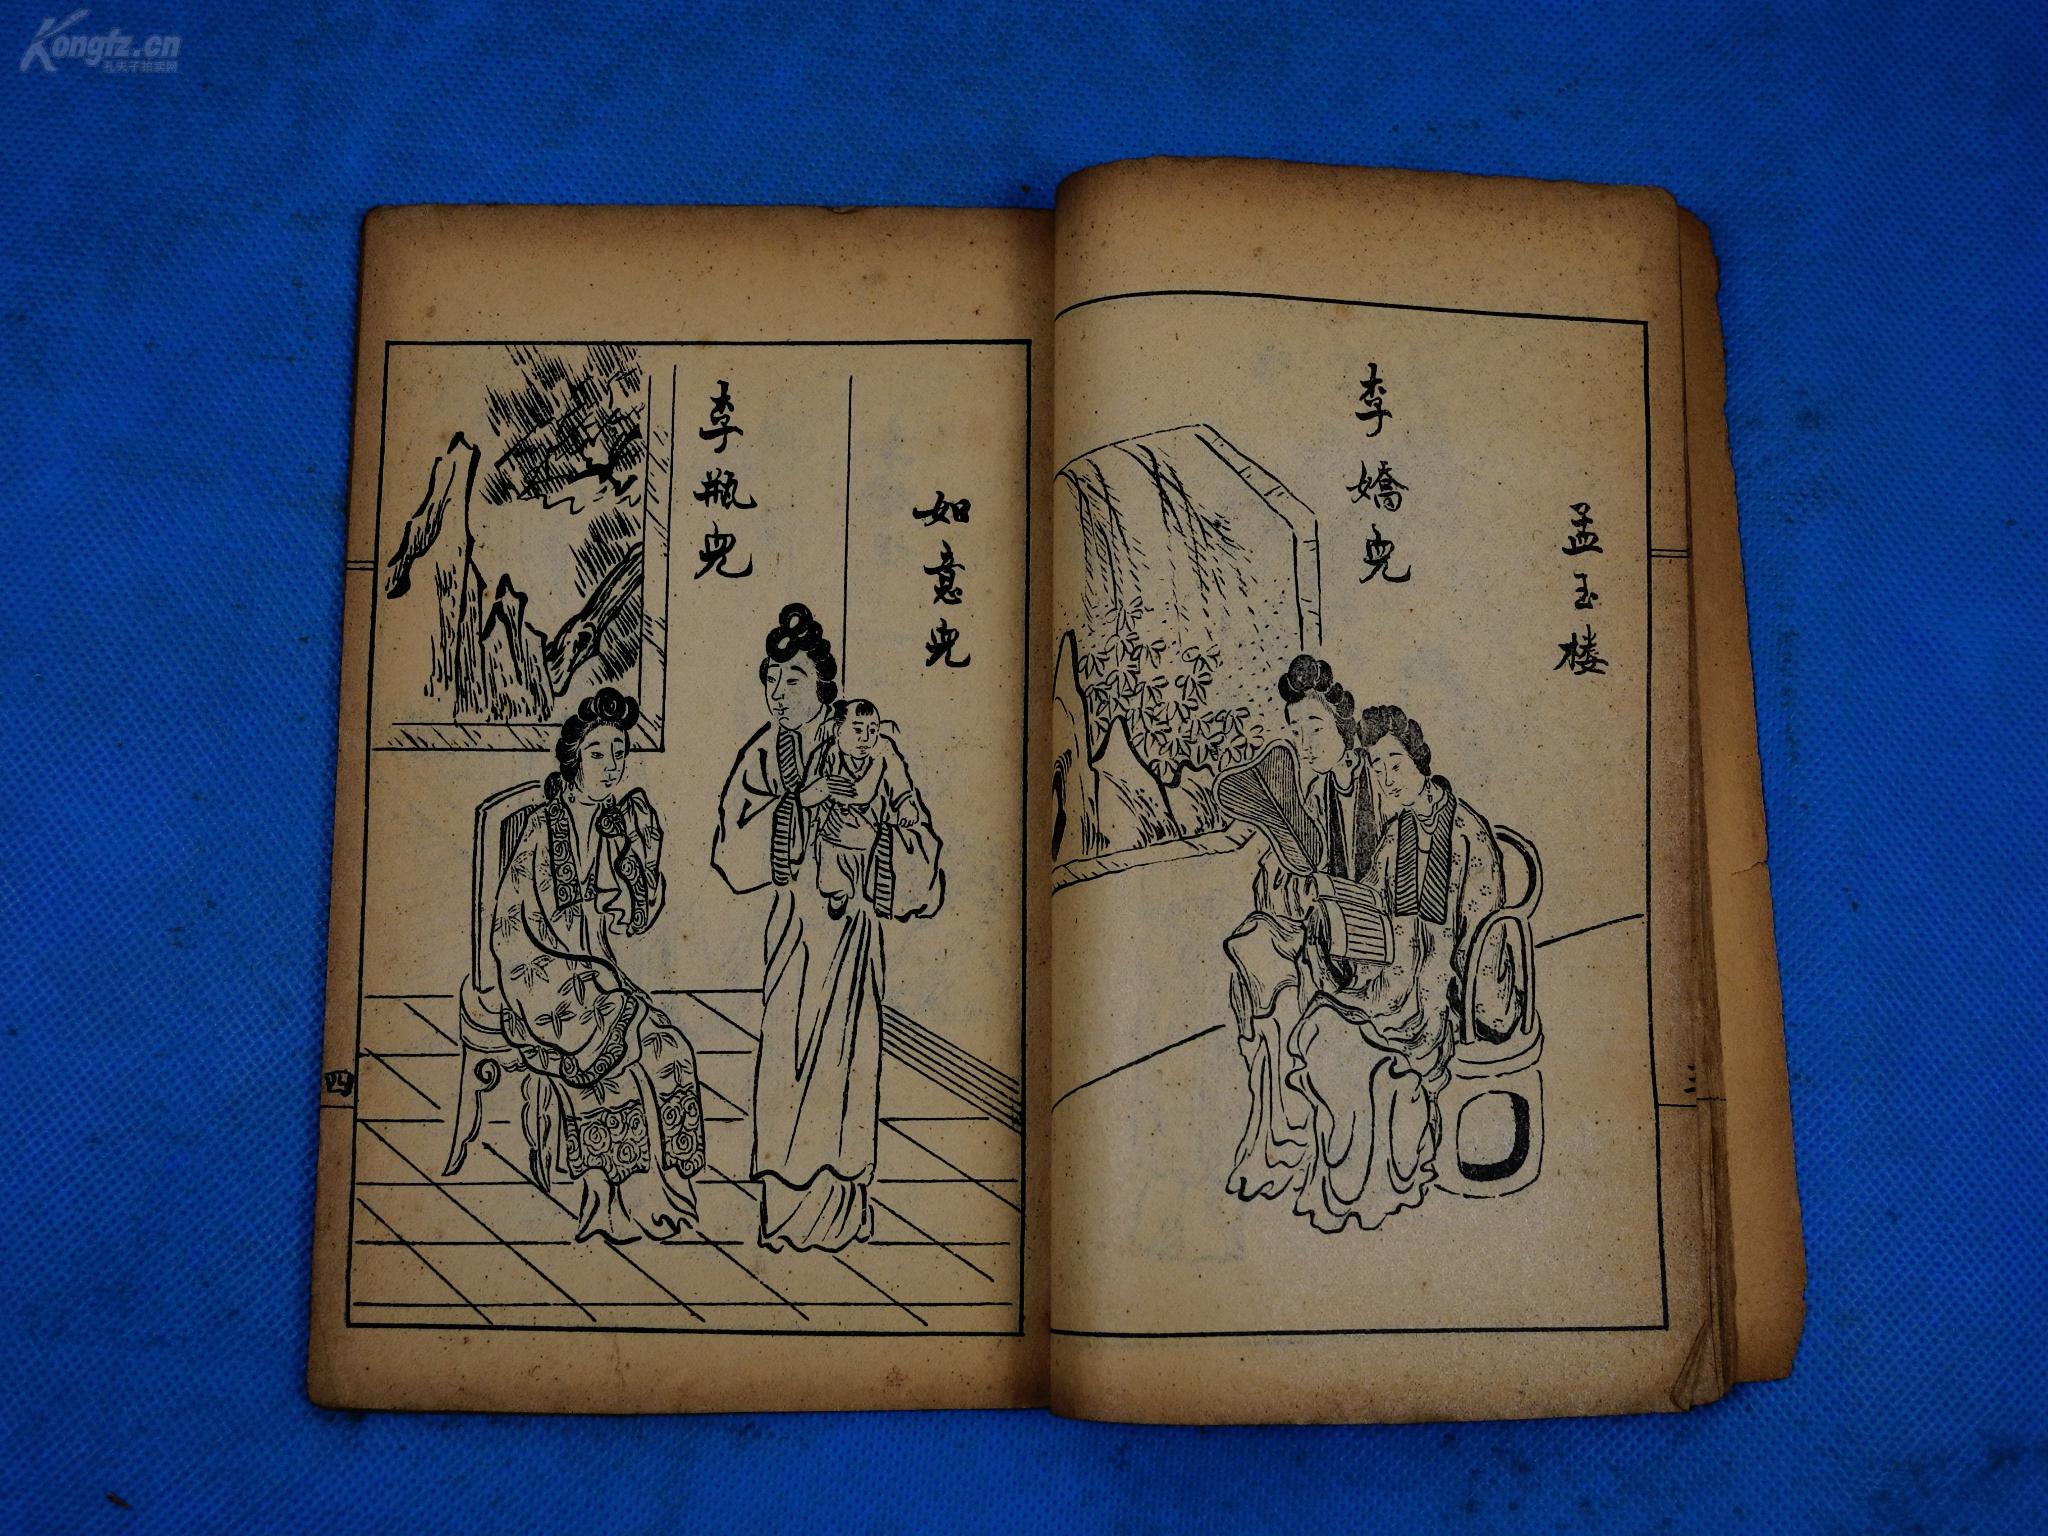 Kongfz.cn
孔夫子拍卖网
孟玉楼
李嬌兒
如意兒
李瓶兒
四